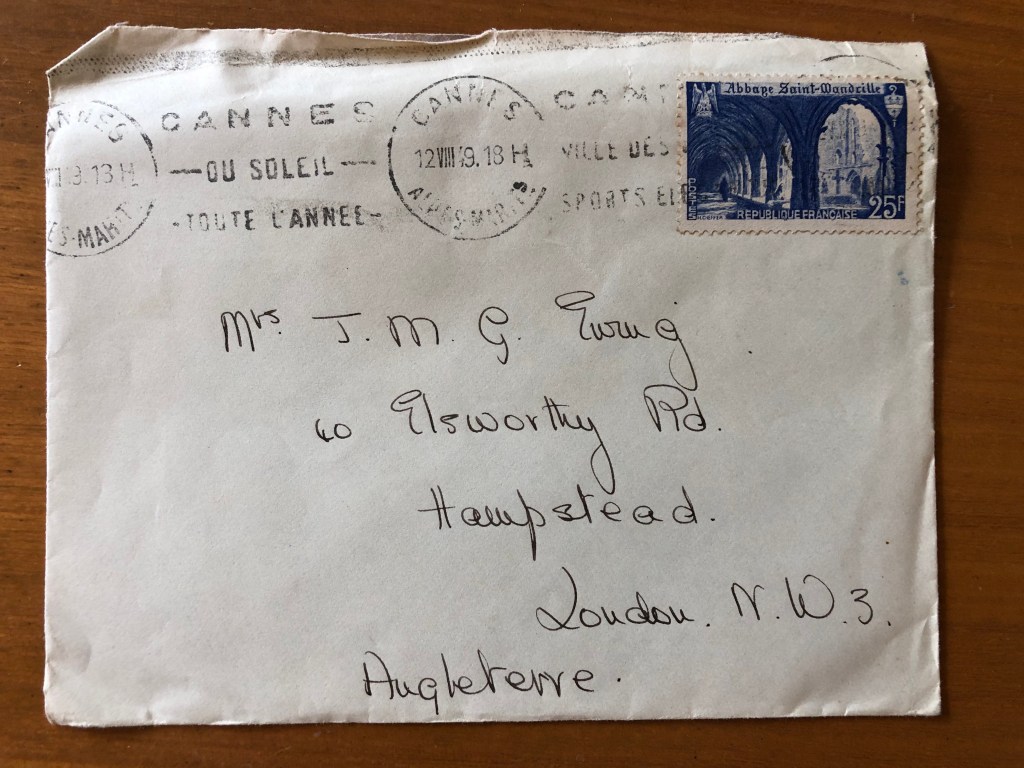 CANNES
DU SOLEIL
-TOUTE L'ANNEE-
9.13H
CANNES
12VIII 49.18H
ALPES-MARITMES
VILLE DES
SPORTS
Abbaye Saint-Wandrille
REPUBLIQUE FRANÇAISE
25F
Mrs. J. M. G. Ewing
60 Elsworthy Rd.
Hampstead.
London. N. W. 3.
Angleterre.